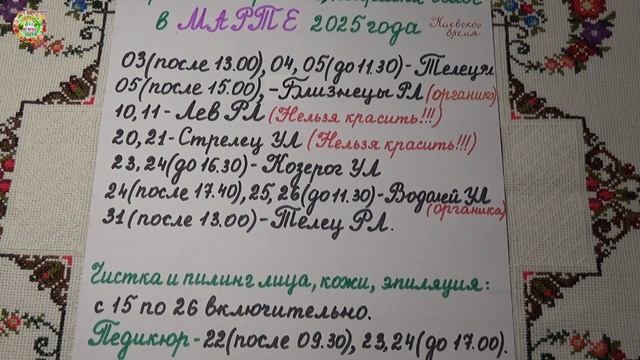 в МАРТЕ 2025 года
Киевское
время
03(после 13.00), 04, 05(до 11.30)-Телец РЛ
05(после 15.00),-Близнецы РЛ (органика)
10,11-Лев РЛ (Нельзя красить!!!)
20,21-Стрелец УЛ (Нельзя красить!!!)
23,24(до 16.30)-Козерог УЛ
24(после 17.40),25,26(до 11.30)-Водолей УЛ
(органика)
31(после 13.00)-Телец РЛ.
Чистка и пилинг лица, кожи, эпиляция:
с 15 по 26 включительно.
Педикюр-22(после 09.30), 23,24(до 17.00).